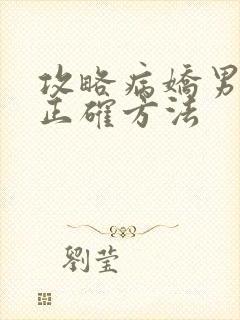 攻略病嬌男
正確方法
劉瑩